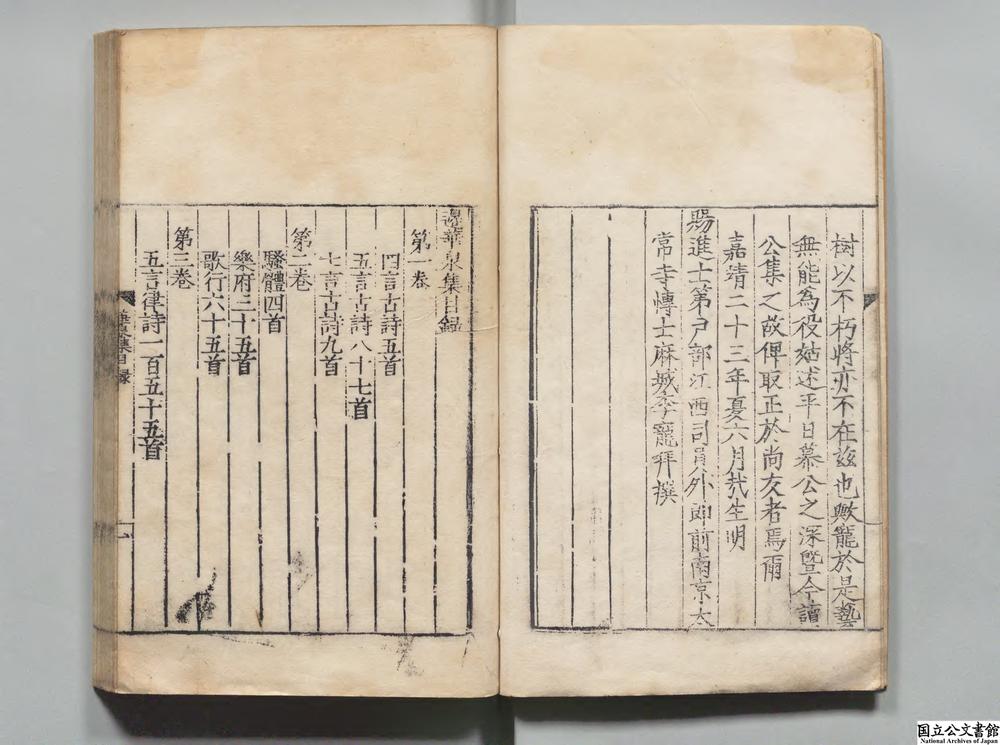 樹以不朽將亦不在玆也歟寵於是藝
無能為役姑述平日慕公之深曁今讀
公集之敬俾取正於尚友者焉爾
嘉靖二十三年夏六月哉生明
賜進士第戶部江西司員外郎前南京太
常寺博士麻城李寵拜撰
邊華泉集目録
第一卷
四言古詩五首
五言古詩八十七首
七言古詩九首
第二卷
騷體四首
樂府三十五首
歌行六十五首
第三卷
五言律詩一百五十五首
集目録
一
国立公文書館
National Archives of Japan